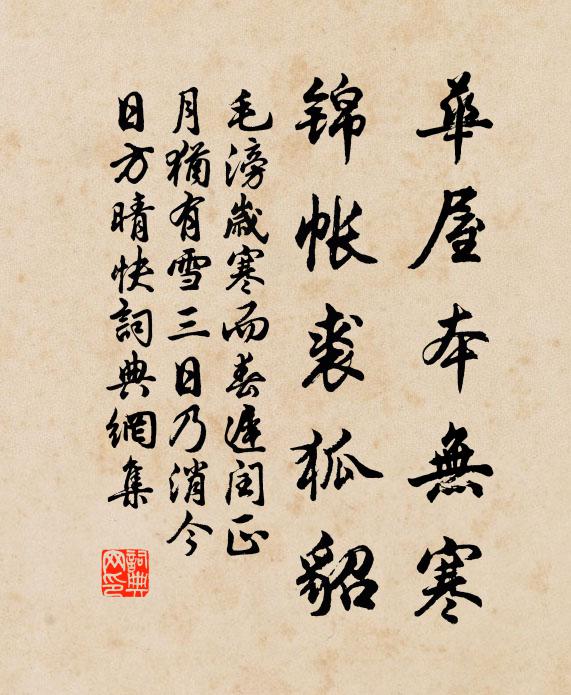 華屋本無寒
錦帐裘狐貂
毛滂歲寒而春遲闰正
月猶有雪三日乃消今
日方晴快詞典網集
詞典
网印